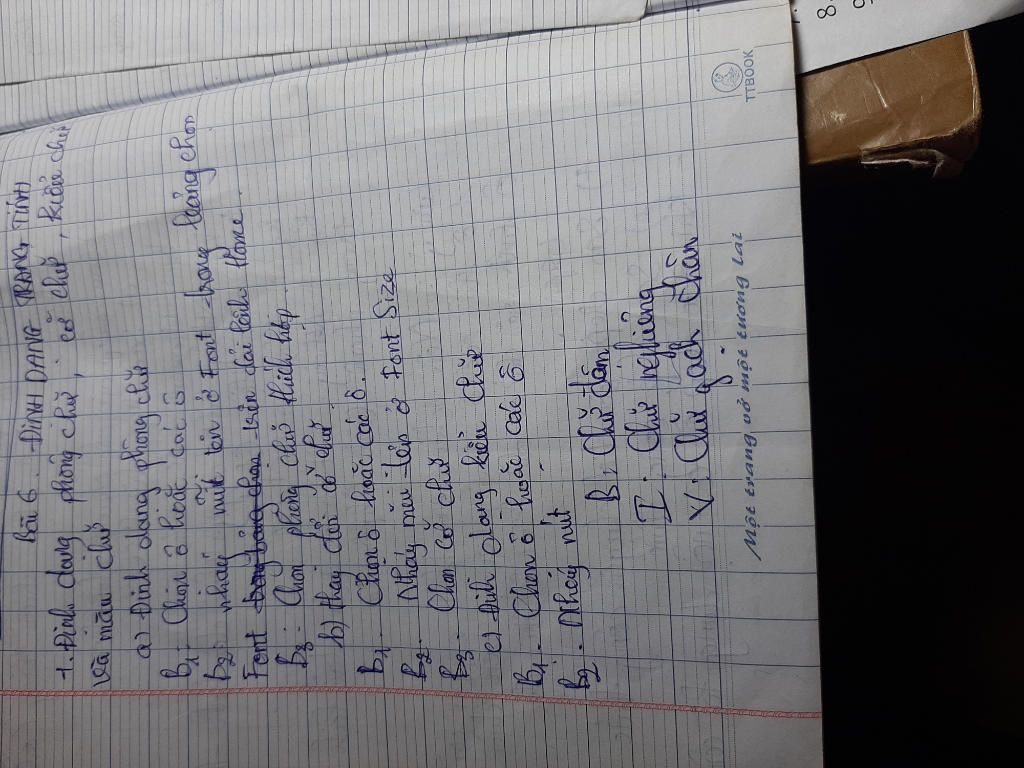 Bài 6. ĐỊNH DẠNG TRANG TÍNH
1. Định dạng phông chữ, cỡ chữ, kiểu chữ
và màu chữ
a) Định dạng phông chữ
B1: Chọn ô hoặc các ô
B2: nháy mũi tên ở Font trong bảng chọn
Font trên dải lệnh Home.
B3: Chọn phông chữ thích hợp.
b) thay đổi cỡ chữ
B1. Chọn ô hoặc các ô.
B2. Nháy mũi tên ở Font Size
B3. Chọn cỡ chữ
c) Định dạng kiểu chữ
B1. Chọn ô hoặc các ô
B2. Nháy nút
B: Chữ đậm
I: Chữ nghiêng
V: Chữ gạch chân
Một trang vở một tương lai
TTBOOK
8.